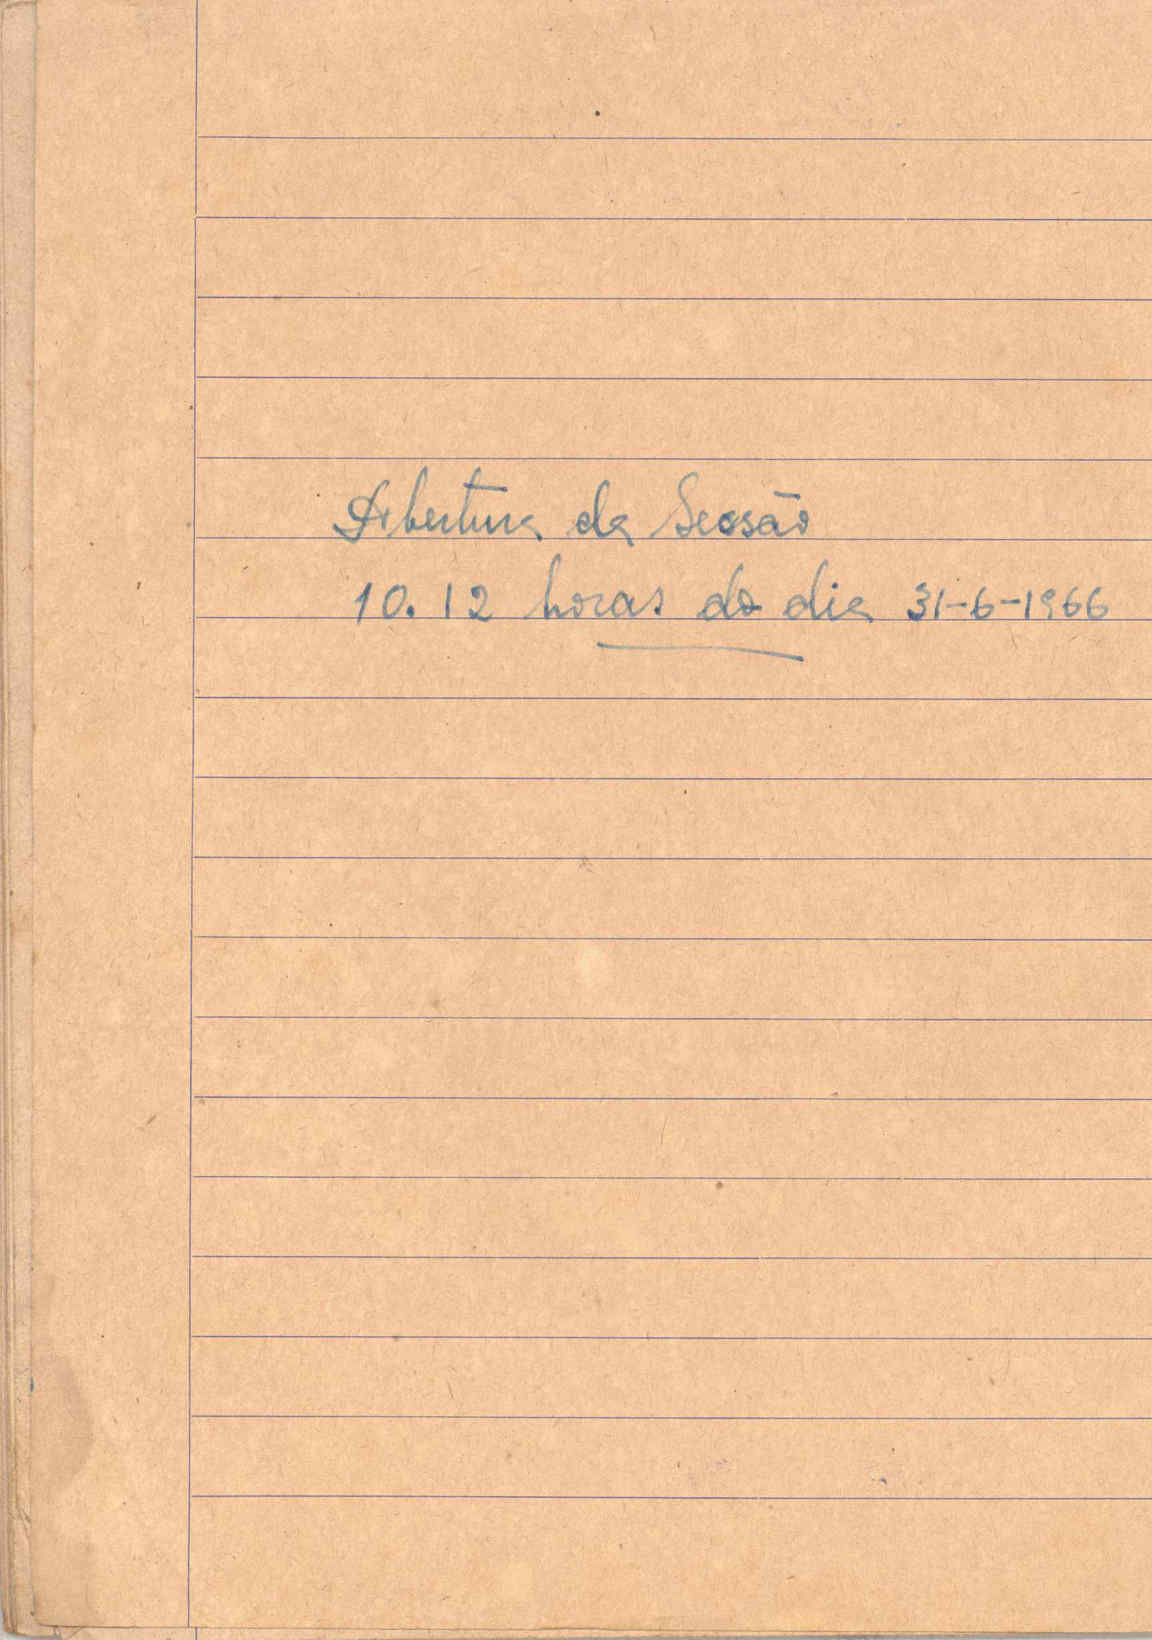 Abertura da Sessão
10.12 horas do dia 31-6-1966